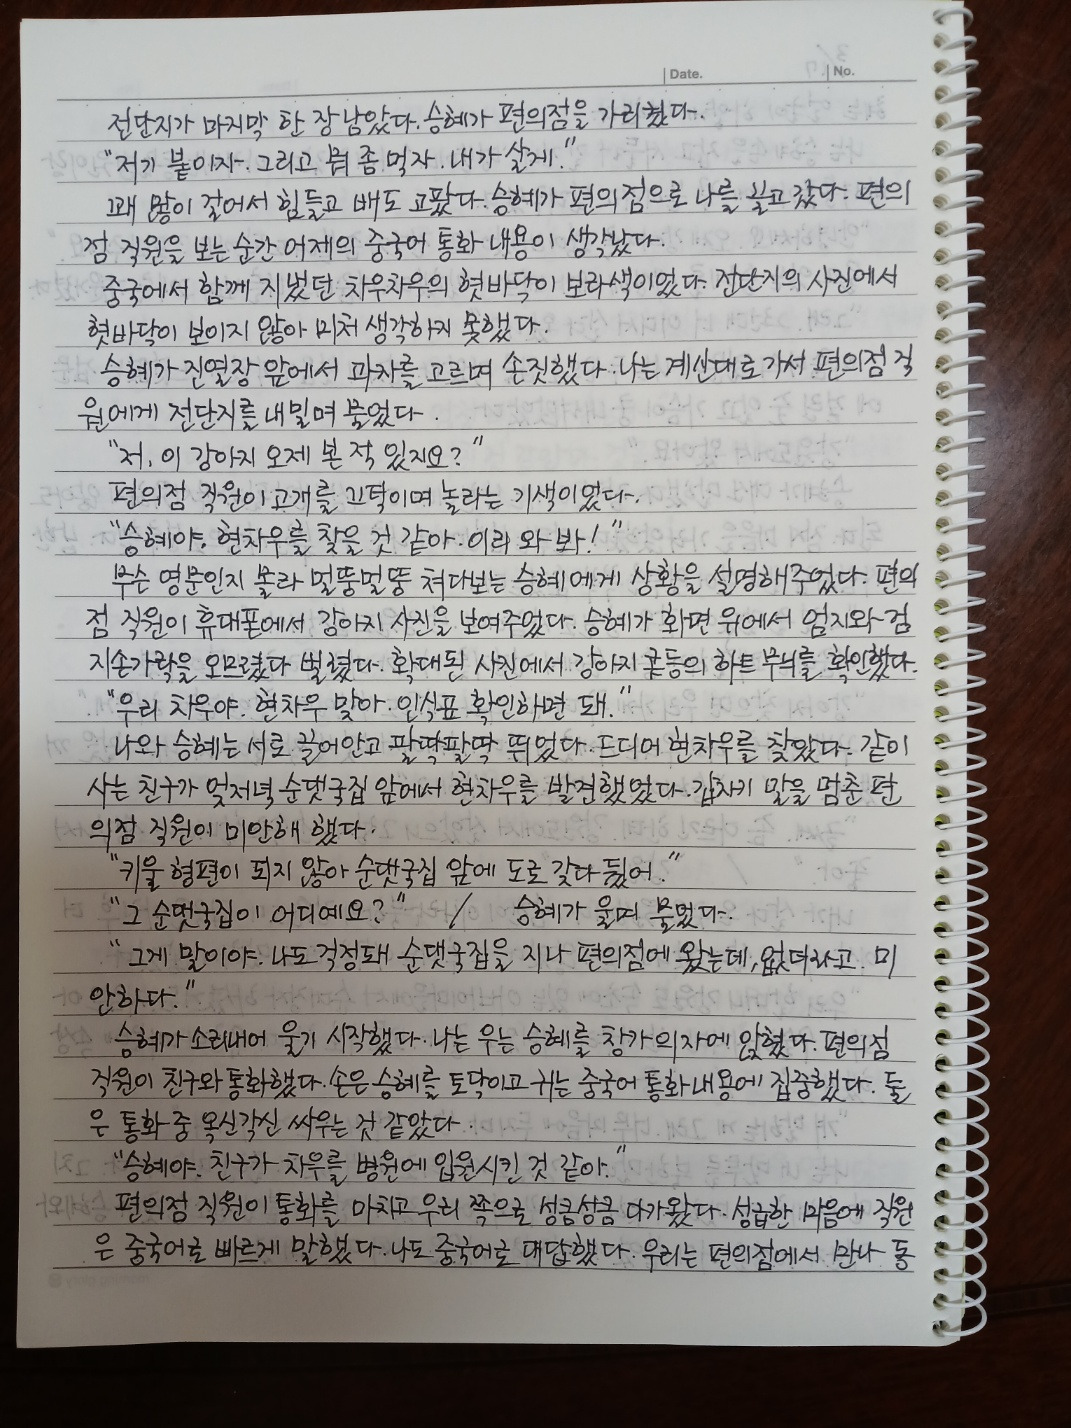 Date.
No.
전단지가 마지막 한 장 남았다. 승혜가 편의점을 가리켰다.
"저기 붙이자. 그리고 뭐 좀 먹자. 내가 살게."
꽤 많이 걸어서 힘들고 배도 고팠다. 승혜가 편의점으로 나를 끌고 갔다. 편의
점 직원을 보는 순간 어제의 중국어 통화 내용이 생각났다.
중국에서 함께 지냈던 차우차우의 혓바닥이 보라색이었다. 전단지의 사진에서
혓바닥이 보이지 않아 미처 생각하지 못했다.
승혜가 진열장 앞에서 과자를 고르며 손짓했다. 나는 계산대로 가서 편의점 직
원에게 전단지를 내밀며 물었다.
"저, 이 강아지 오제 본 적 있지요?"
편의점 직원이 고개를 끄탁이며 놀라는 기색이었다.
"승혜야. 현차우를 찾을 것 같아. 이리 와 봐!"
무슨 영문인지 몰라 멀뚱멀뚱 쳐다보는 승혜에게 상황을 설명해주었다. 편의
점 직원이 휴대폰에서 강아지 사진을 보여주었다. 승혜가 화면 위에서 엄지와 검
지손가락을 오므렸다 벌렸다. 확대된 사진에서 강아지 콧등의 하트 무늬를 확인했다.
"우리 차우야. 현차우 맞아. 인식표 확인하면 돼."
나와 승혜는 서로 끌어안고 팔딱팔딱 뛰었다. 드디어 현차우를 찾았다. 같이
사는 친구가 엊저녁 순댓국집 앞에서 현차우를 발견했었다. 갑자기 말을 멈춘 편
의점 직원이 미안해 했다.
"키울 형편이 되지 않아 순댓국집 앞에 도로 갖다 뒀어."
"그 순댓국집이 어디예요?" / 승혜가 울며 물었다.
"그게 말이야. 나도 걱정돼 순댓국집을 지나 편의점에 왔는데, 없더라고. 미
안하다."
승혜가 소리내어 울기 시작했다. 나는 우는 승혜를 창가 의자에 앉혔다. 편의점
직원이 친구와 통화했다. 손은 승혜를 토닥이고 귀는 중국어 통화 내용에 집중했다. 둘
은 통화 중 옥신각신 싸우는 것 같았다.
"승혜야. 친구가 차우를 병원에 입원시킨 것 같아."
편의점 직원이 통화를 마치고 우리 쪽으로 성큼성큼 다가왔다. 성급한 마음에 직원
은 중국어로 빠르게 말했다. 나도 중국어로 대답했다. 우리는 편의점에서 만나 동